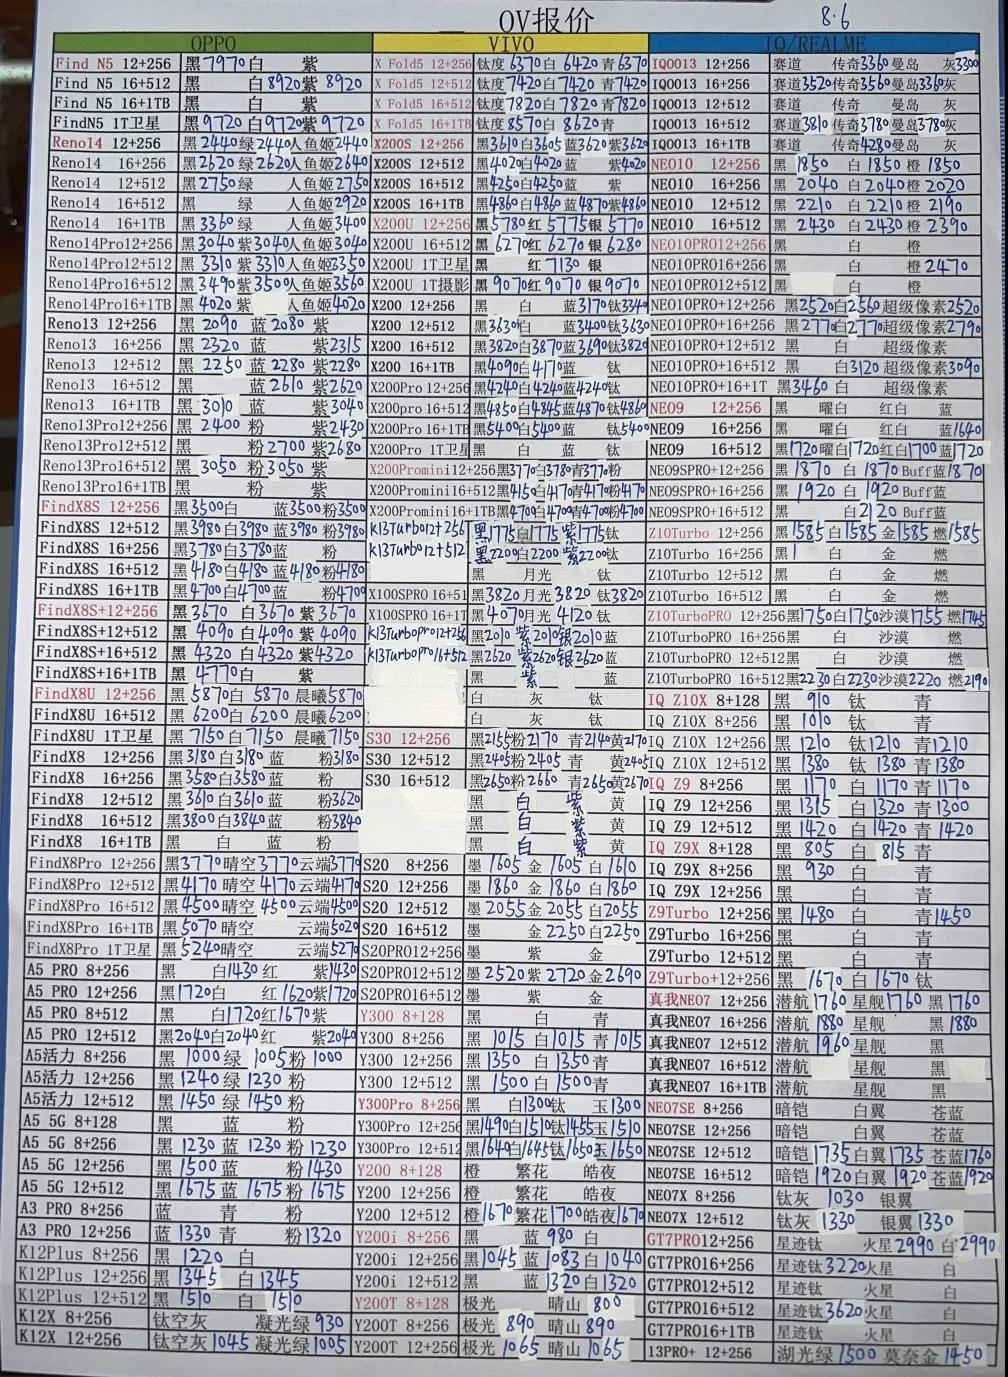 OV报价 8.6
OPPO VIVO IQ/REALME
Find N5 12+256 黑7970白 紫 X Fold5 12+256 钛度6370白 6420 青6370 IQOO13 12+256 赛道 传奇3360曼岛 灰3300
Find N5 16+512 黑 白8920紫 8920 X Fold5 12+512 钛度7420白 7420 青7420 IQOO13 16+256 赛道3520传奇3560曼岛3360灰
Find N5 16+1TB 黑 白 紫 X Fold5 16+512 钛度7820白7820 青7820 IQOO13 12+512 赛道 传奇 曼岛 灰
FindN5 1T卫星 黑9720 白9720紫 9720 X Fold5 16+1TB 钛度8570白8620青 IQOO13 16+512 赛道3810传奇3780曼岛3780灰
Reno14 12+256 黑2440绿2440人鱼姬2440 X200S 12+256 黑3610白3605蓝3620紫3620 IQOO13 16+1TB 赛道 传奇4280曼岛 灰
Reno14 16+256 黑2620绿2620人鱼姬2640 X200S 12+512 黑4020白4020蓝 紫4020 NEO10 12+256 黑 1850 白 1850 橙 1850
Reno14 12+512 黑2750绿 人鱼姬2750 X200S 16+512 黑4250白4250蓝 紫 NEO10 16+256 黑 2040 白 2040橙 2020
Reno14 16+512 黑 绿 人鱼姬2920 X200S 16+1TB 黑4860白4860 蓝4870紫4860 NEO10 12+512 黑 2210 白 2210橙 2190
Reno14 16+1TB 黑 3360绿 人鱼姬3400 X200U 12+256 黑5780红 5775银 5770 NEO10 16+512 黑 2430 白 2430 橙 2390
Reno14Pro12+256 黑3040紫3040人鱼姬3040 X200U 16+512 黑 6270红 6270 银 6280 NEO10PRO12+256 黑 白 橙
Reno14Pro12+512 黑 3310 紫3310人鱼姬3350 X200U 1T卫星 黑 红 7130 银 NEO10PRO16+256 黑 白 橙2470
Reno14Pro16+512 黑3490紫3500人鱼姬3560 X200U 1T摄影 黑 9070红 9070 银 9070 NEO10PRO12+512 黑 白 橙
Reno14Pro16+1TB 黑 4020 紫 人鱼姬4020 X200 12+256 黑 白 蓝3170钛3340 NEO10PRO+12+256 黑2520白2560超级像素2520
Reno13 12+256 黑 2090 蓝 2080 紫 X200 12+512 黑3630白 蓝3400钛3630 NEO10PRO+16+256 黑2770白2770超级像素2790
Reno13 16+256 黑 2320 蓝 紫2315 X200 16+512 黑3820白3870蓝3690钛3820 NEO10PRO+12+512 黑 白 超级像素
Reno13 12+512 黑 2250 蓝 2280 紫2280 X200 16+1TB 黑4090白4170蓝 钛 NEO10PRO+16+512 黑 白3120超级像素3090
Reno13 16+512 黑 蓝2610 紫2620 X200Pro 12+256 黑4240白4240蓝4240钛 NEO10PRO+16+1T 黑3460 白 超级像素
Reno13 16+1TB 黑 3010 蓝 紫3040 X200pro 16+512 黑4850白4845蓝4870 钛4860 NEO9 12+256 黑 曜白 红白 蓝
Reno13Pro12+256 黑 2400 粉 紫2430 X200Pro 16+1TB 黑5400白5400蓝 钛5400 NEO9 16+256 黑 白 红白 蓝1640
Reno13Pro12+512 黑 粉 2700 紫2680 X200Pro 1T卫星 黑 白 蓝 钛 NEO9 16+512 黑1720曜白1720红白1700蓝1720
Reno13Pro16+512 黑 3050 粉3050 紫 X200Promini12+256 黑3770白3780青3770粉 NEO9SPRO+12+256 黑 1870 白 1870 Buff蓝1870
Reno13Pro16+1TB 黑 粉 紫 X200Promini16+512 黑4150白4170青4170粉4170 NEO9SPRO+16+256 黑 1920 白 1920 Buff蓝
FindX8S 12+256 黑3500白 蓝3500粉3500 X200Promini16+1TB 黑4700白4700青4700粉4700 NEO9SPRO+16+512 黑 白2120 Buff蓝
FindX8S 12+512 黑3980白3980 蓝3980 粉3980 K13Turbo12+256 黑1775白1775 紫1775钛 Z10Turbo 12+256 黑1585 白1585 金 1585 燃1585
FindX8S 16+256 黑3780白3780蓝 粉 K13Turbo12+512 黑2200白2200 紫2200钛 Z10Turbo 16+256 黑 白 金 燃
FindX8S 16+512 黑4180白4180 蓝4180 粉4180 黑 月光 钛 Z10Turbo 12+512 黑 白 金 燃
FindX8S 16+1TB 黑4700白4700蓝 粉4700 X100SPRO 16+51 黑3820月光 3820 钛3820 Z10Turbo 16+512 黑 白 金 燃
FindX8S+12+256 黑 3670 白3670紫 3670 X100SPRO 16+1T 黑4070月光 4120 钛 Z10TurboPRO 12+256 黑1750白1750沙漠1755 燃1745
FindX8S+12+512 黑 4090 白4090 紫 4090 K13Turbopro12+256 黑2010 紫2010银2010蓝 Z10TurboPRO 16+256 黑 白 沙漠 燃
FindX8S+16+512 黑 4320 白4320 紫4320 K13Turbopro16+512 黑2620 紫2620银2620蓝 Z10TurboPRO 12+512 黑 白 沙漠 燃
FindX8S+16+1TB 黑 4770白 紫 黑 紫 蓝 Z10TurboPRO 16+512 黑2230白2230沙漠2220 燃2190
FindX8U 12+256 黑 5870白 5870 晨曦5870 白 灰 钛 IQ Z10X 8+128 黑 910 钛 青
FindX8U 16+512 黑 6200白 6200 晨曦6200 白 灰 钛 IQ Z10X 8+256 黑 1010 钛 青
FindX8U 1T卫星 黑 7150 白7150 晨曦 7150 S30 12+256 黑2155粉2170 青2140黄2170 IQ Z10X 12+256 黑 1210 钛1210 青1210
FindX8 12+256 黑3180 白3180 蓝 粉3180 S30 12+512 黑2405粉2405 青 黄2405 IQ Z10X 12+512 黑 1380 钛 1380 青1380
FindX8 16+256 黑 3580白3580蓝 粉 S30 16+512 黑2650粉2660 青2650黄2670 IQ Z9 8+256 黑 1170 白 1170 青1170
FindX8 12+512 黑 3610白3610蓝 粉3620 黑 白 紫 黄 IQ Z9 12+256 黑 1315 白 1320 青1300
FindX8 16+512 黑3800白3840蓝 粉3840 黑 白 紫 黄 IQ Z9 12+512 黑 1420 白 1420 青 1420
FindX8 16+1TB 黑 白 蓝 粉 黑 白 紫 黄 IQ Z9X 8+128 黑 805 白 815 青
FindX8Pro 12+256 黑3770晴空 3770云端3770 S20 8+256 墨 1605 金 1605 白1610 IQ Z9X 8+256 黑 930 白 青
FindX8Pro 12+512 黑4170 晴空 4170云端4170 S20 12+256 墨 1860 金 1860 白1860 IQ Z9X 12+256 黑 白 青
FindX8Pro 16+512 黑4500晴空 4500云端4500 S20 12+512 墨 2055 金 2055 白2055 Z9Turbo 12+256 黑 1480 白 青1450
FindX8Pro 16+1TB 黑5070晴空 云端5020 S20 16+512 墨 金 2250白2250 Z9Turbo 16+256 黑 白 青
FindX8Pro 1T卫星 黑5240晴空 云端5270 S20PRO12+256 墨 紫 金 Z9Turbo 12+512 黑 白 青
A5 PRO 8+256 黑 白1430 红 紫1430 S20PRO12+512 墨 2520紫 2720 金2690 Z9Turbo+12+256 黑 1670 白1670 钛
A5 PRO 12+256 黑1720白 红 1620紫1720 S20PRO16+512 墨 紫 金 真我NEO7 12+256 潜航 1760 星舰1760 黑 1760
A5 PRO 8+512 黑 白1720红1670紫 Y300 8+128 黑 白 青 真我NEO7 16+256 潜航 1880 星舰 黑 1880
A5 PRO 12+512 黑2040白2040红 紫2040 Y300 8+256 黑 1015 白 1015 青 1015 真我NEO7 12+512 潜航 1960 星舰 黑
A5活力 8+256 黑 1000 绿 1005 粉 1000 Y300 12+256 黑 1350 白 1350 青 真我NEO7 16+512 潜航 星舰 黑
A5活力 12+256 黑 1240 绿 1230 粉 Y300 12+512 黑 1500 白 1500青 真我NEO7 16+1TB 潜航 星舰 黑
A5活力 12+512 黑 1450 绿 1450 粉 Y300Pro 8+256 黑 白1300钛 玉1300 NEO7SE 8+256 暗铠 白翼 苍蓝
A5 5G 8+128 黑 蓝 粉 Y300Pro 12+256 黑1490白1510钛1455玉1510 NEO7SE 12+256 暗铠 白翼 苍蓝
A5 5G 8+256 黑 1230 蓝 1230 粉 1230 Y300Pro 12+512 黑1640白1645钛1650玉1650 NEO7SE 12+512 暗铠1735白翼1735 苍蓝1760
A5 5G 12+256 黑 1500 蓝 粉1430 Y200 8+128 橙 繁花 皓夜 NEO7SE 16+512 暗铠1920白翼 1920苍蓝1920
A5 5G 12+512 黑 1675 蓝 1675 粉 1675 Y200 12+256 橙 繁花 皓夜 NEO7X 8+256 钛灰 1030 银翼
A3 PRO 8+256 蓝 青 粉 Y200 12+512 橙1670繁花1700皓夜1670 NEO7X 12+512 钛灰 1330 银翼1330
A3 PRO 12+256 蓝 1330 青 粉1320 Y200i 8+256 黑 蓝 980 白 GT7PRO12+256 星迹钛 火星2990 白2990
K12Plus 8+256 黑 1220 白 Y200i 12+256 黑1045 蓝 1083 白1040 GT7PRO16+256 星迹钛3220火星 白
K12Plus 12+256 黑 1345 白 1345 Y200i 12+512 黑 蓝 1320白1320 GT7PRO12+512 星迹钛 火星 白
K12Plus 12+512 黑 1510 白 1510 Y200T 8+128 极光 晴山 800 GT7PRO16+512 星迹钛3620火星 白
K12X 8+256 钛空灰 凝光绿 930 Y200T 8+256 极光 890 晴山890 GT7PRO16+1TB 星迹钛 火星 白
K12X 12+256 钛空灰 1045 凝光绿1005 Y200T 12+256 极光 1065 晴山1065 13PRO+ 12+256 湖光绿 1500 莫奈金1450